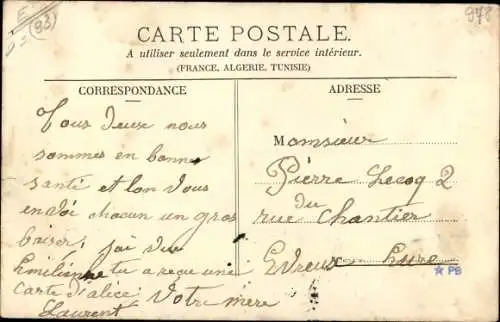 E
(93)
978
CARTE POSTALE.
A utiliser seulement dans le service intérieur.
(FRANCE, ALGERIE, TUNISIE)
CORRESPONDANCE
Tous deux nous
sommes en bonne
santé et lon vous
envoi chacun un gros
baiser, jai vu
Emilienne tu a recu une
carte d'alice Votre mère
Laurent
ADRESSE
Monsieur
Pierre Lecoq 2
du
rue Chantier
Evreux Eure
PB